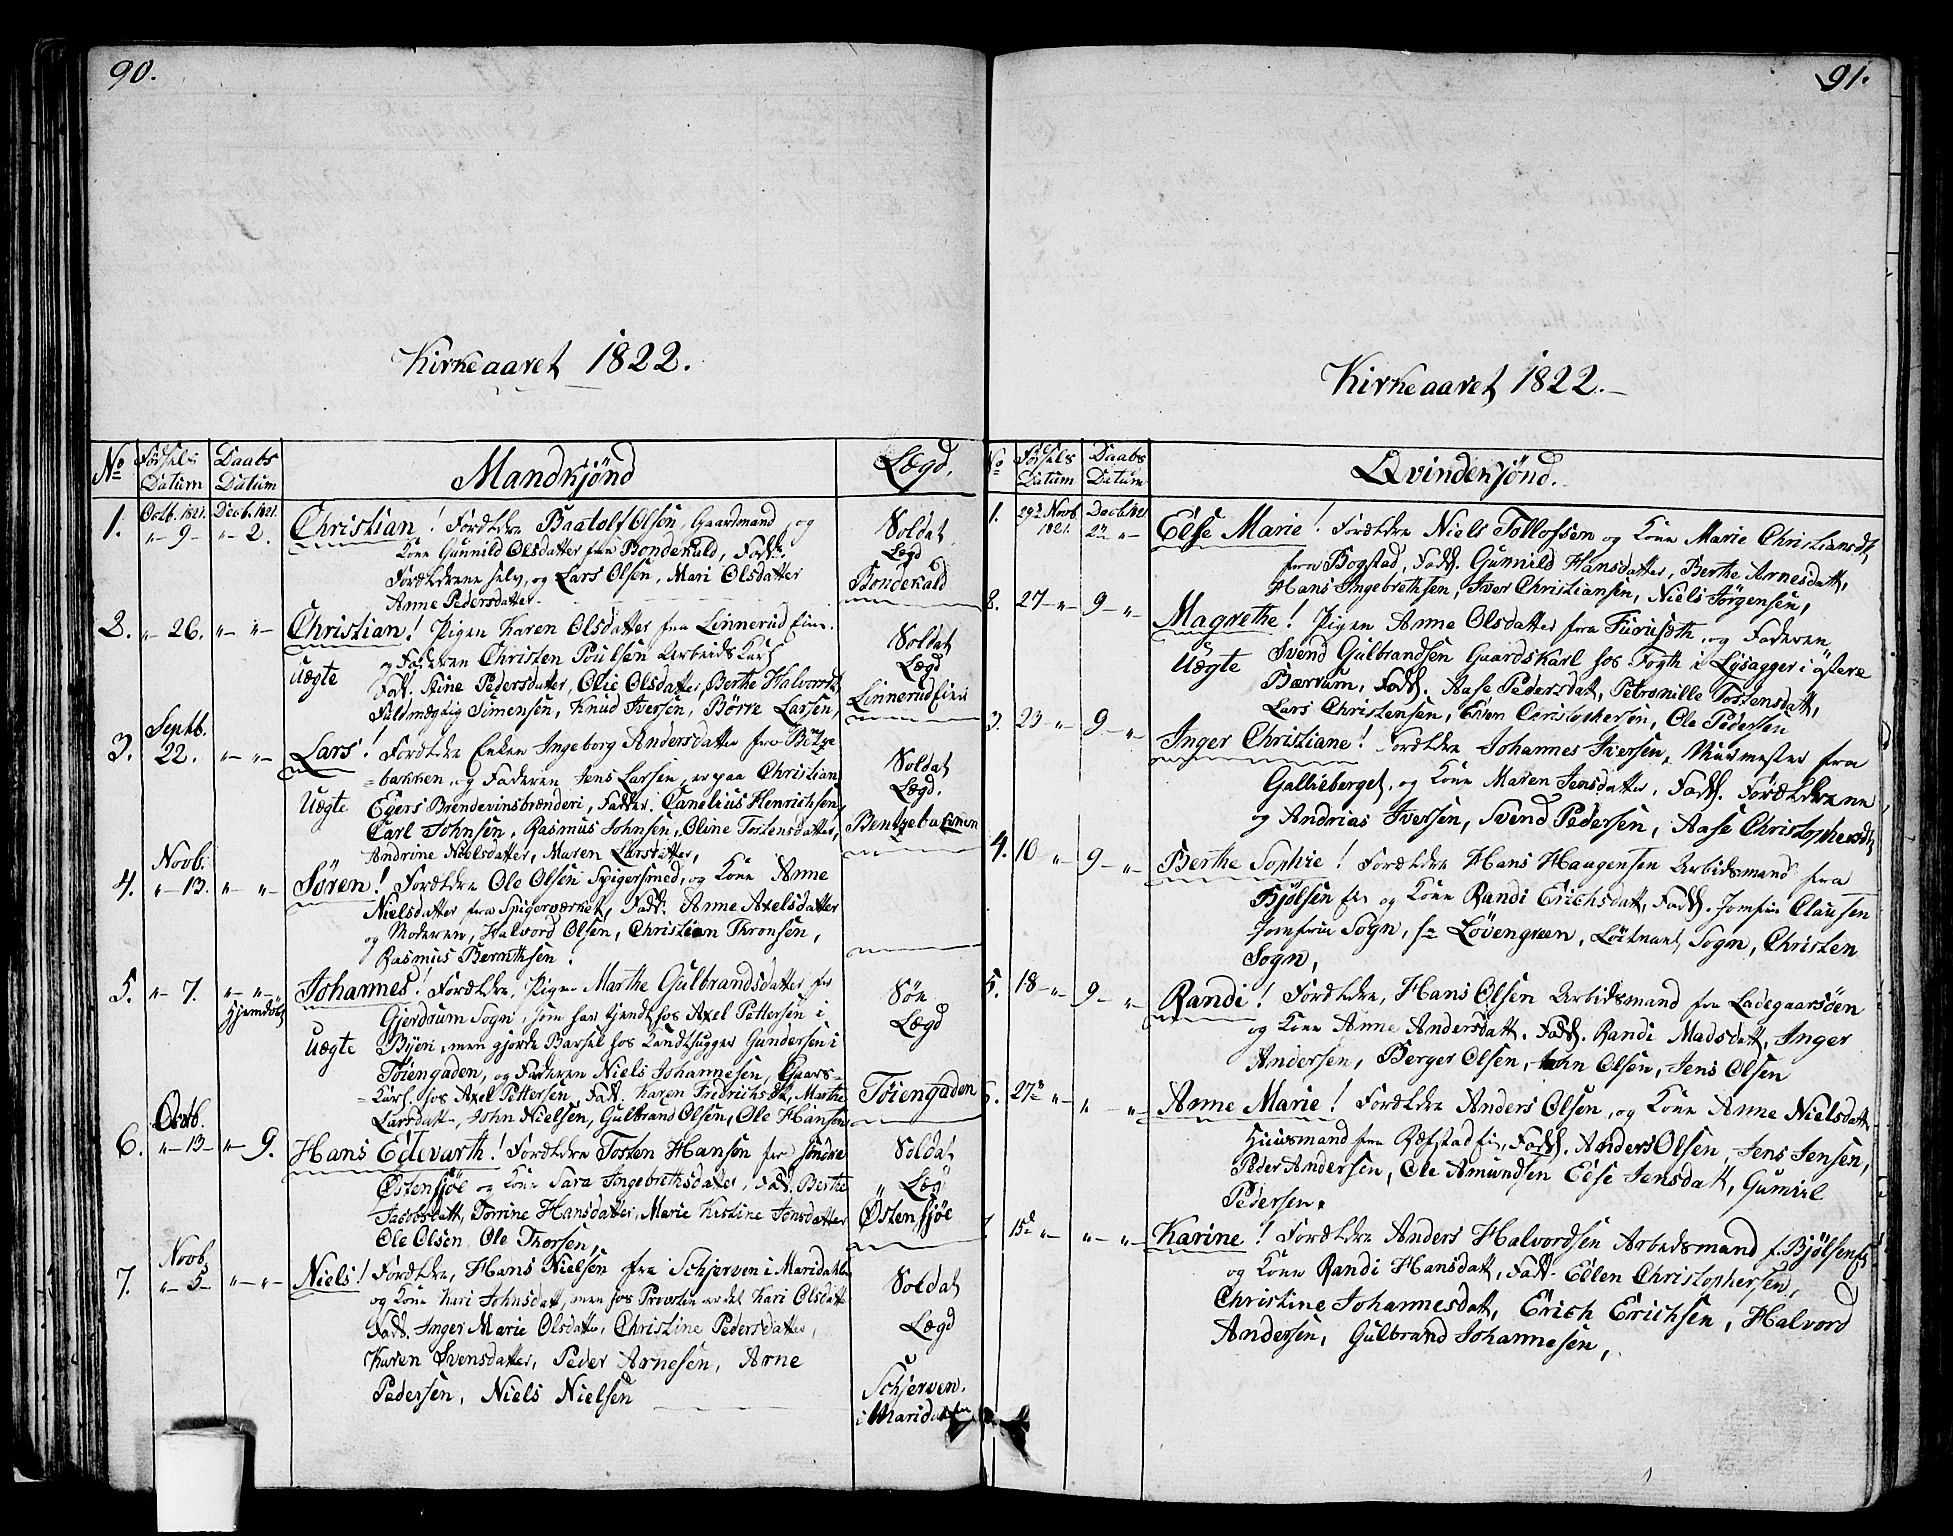 90.
Kirkeaaret 1822.
No Fødsels Datum Daabs Datum Mandkjönd Lægd.
1. Octb. 1821. "-9- Decb. 1821. "- 2. Christian! Forældre Baatolf Olsen, Gaardmand og Soldat
Kone Gunnild Olsdatter fra Bondekuld, Fadd. Lægd
Forældrene selv, og Lars Olsen, Mari Olsdatter Bondekald
Anne Pedersdatter
2. "- 26. "- "- Christian! Pigen Karen Olsdatter fra Linnerud Eier Soldat
Uægte og Faderen Christen Poulsen Arbeids Karl Lægd
Fadd. Stine Pedersdatter, Olie Olsdatter, Berthe Halvorsd. Linnerud Eier
Fuldmægtig Simensen, Knud Iversen, Börre Larsen,
3. Septb. 22. "- "- Lars! Forældre Enken Ingeborg Andersdatter fra Bentze Soldat
Uægte =bakken, og Faderen Jens Larsen, er paa Christian Lægd.
Egers Brendevinsbrænderi, Fadder. Canelius Henrichsen, Bentzebakken
Carl Johnsen, Rasmus Johnsen, Oline Tostensdatter,
Andrine Nielsdatter, Maren Larsdatter,
4. Novb. "-13. "- "- Sören! Forældre Ole Olsen Spigersmed, og Kone Anne
Nielsdatter fra Spigerværket, Fadd. Anne Axelsdatter
og Moderen, Halvord Olsen, Christian Thronsen,
Rasmus Bernthsen.
5. "- 7. "- "- Hjemdöbt Johannes! Forældre, Pigen Marthe Gulbrandsdatter fra Sön
Gjerdrum Sogn, som har tjendt hos Axel Pettersen i Lægd
Uægte Byen, men gjorde Barsel hos Gundersen i
Töiengaden, og Faderen Niels Johannesen, Gaars= Töiengaden
=Karl hos Axel Pettersen, Fadd. Karen Fredrichsd., Marthe
Larsdatt, John Nielsen, Gulbrand Olsen, Ole Hansen
6. Octb. "-13- "- 9. Hans Edevarth! Forældre Tosten Hansen fra Söndre Soldat
Östensjöe og Kone Sara Ingebrethsdatter, Fadd. Berthe " Lægd
Jacobsdatt, Torrine Hansdatter, Marie Kistine Jonsdatter Östensjöe
Ole Olsen, Ole Thorsen,
7. Novb. "-5- "- "- Niels! Forældre, Hans Nielsen fra Schjerven i Maridahlen Soldat
og Kone Kari Johnsdatt, men hos Provsten er det Kari Olsdatt Lægd
Fadd. Inger Marie Olsdatter, Christine Pedersdatter,
Karen Svensdatter, Peder Arnesen, Arne Schjerven
Pedersen, Niels Nielsen i Maridalen
91.
Kirkeaaret 1822.
No Fødsels Datum Daabs Datum Qvindekjönd.
1. 29de Novb. 1821. Decb. 1821 2den "- Else Marie! Forældre Niels Tollofsen og Kone Marie Christiansdt,
fra Bogstad, Fadd. Gunnild Hansdatter, Berthe Arnesdatt,
Hans Ingebrethsen, Iver Christiansen, Niels Jörgensen,
2. 27-"- 9- "- Magrethe! Pigen Anne Olsdatter fra Furuseth, og Faderen
Uægte Svend Gulbrandsen Gaardskarl hos Fogth i Lysagger i östere
Bærrum, Fadd. Aase Pedersdat, Petronille Tostensdatt,
Lars Christensen, Even Christophersen, Ole Pedersen
3. 23 "- 9 - "- Inger Christiane! Forældre Johannes Iversen, Murmester fra
Gallieberget, og Kone Maren Jensdatter, Fadd. Forældrene
og Andrias Iversen, Svend Pedersen, Aase Christophersdt,
4. 10 "- 9- "- Berthe Sophie! Forældre Hans Haugensen Arbidsmand fra
Bjölsen Eie og Kone Randi Erichsdatt, Fadd. Jomfru Clausen
Jomfru Sogn, Lövengreen, Löitnant Sogn, Christen
Sogn,
5. 18 -"- 9- "- Randi! Forældre, Hans Olsen Arbidsmand fra Ladegaarsöen
og Kone Anne Andersdatt. Fadd. Randi Madsdatt, Inger
Andersen, Berger Olsen, John Olsen, Jens Olsen
6. 27de "- "- "- Anne Marie! Forældre Anders Olsen, og Kone Anne Nielsdatt
Huusmand fra Refstad Eie, Fadd. Anders Olsen, Jens Jensen,
Peder Andersen, Ole Amundsen Else Jensdatt, Guniel
Pedersen.
7. 15de "- "- "- Karine! Forældre Anders Halvordsen Arbedsmand f. Bjölsen
og Kone Randi Hansdatt, Fadd. Ellen Christophersen,
Christine Johannesdatt, Erich Erichsen, Halvord
Andersen, Gulbrand Johannesen,